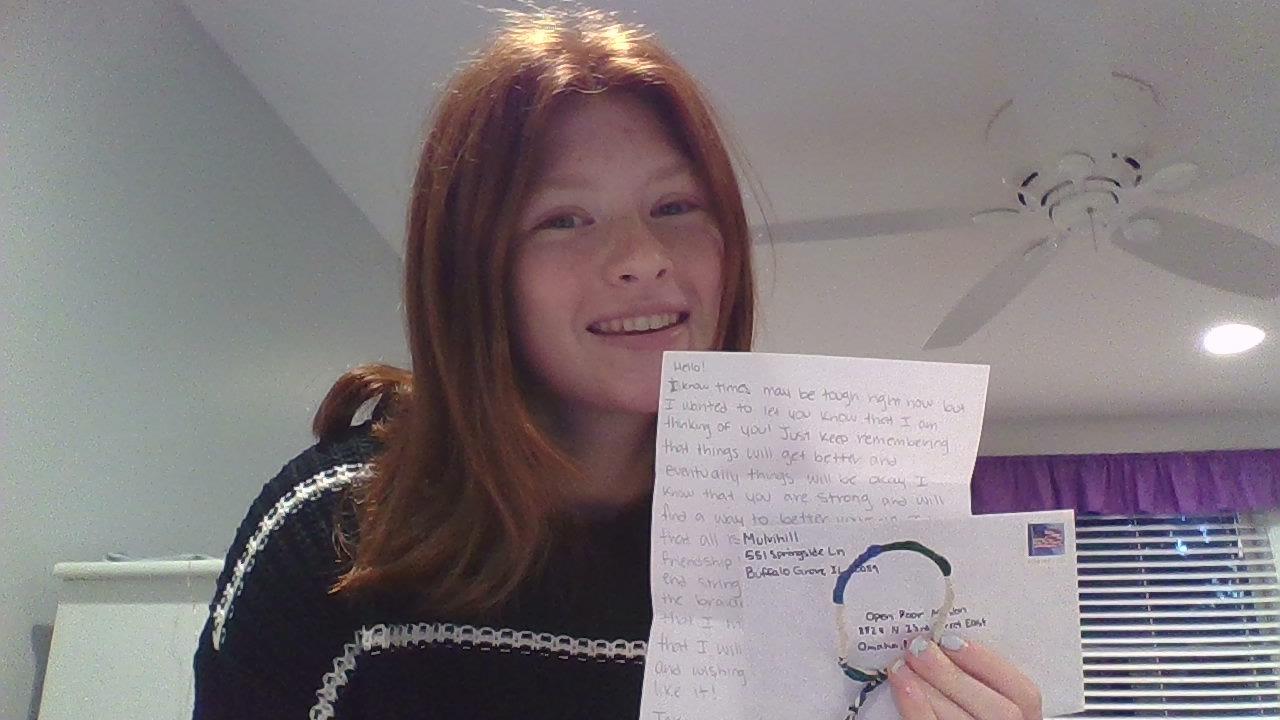 Hello!
I know times may be tough right now but
I wanted to let you know that I am
thinking of you! Just keep remembering
that things will get better and
eventually things will be okay I
know that you are strong and will
find a way to better
that all is
Friendship
end string
the
that I
that I will
and wishing
like it!
Mulvihill
551 Springside Ln
Buffalo Grove IL
Open Door
N East
Omaha,